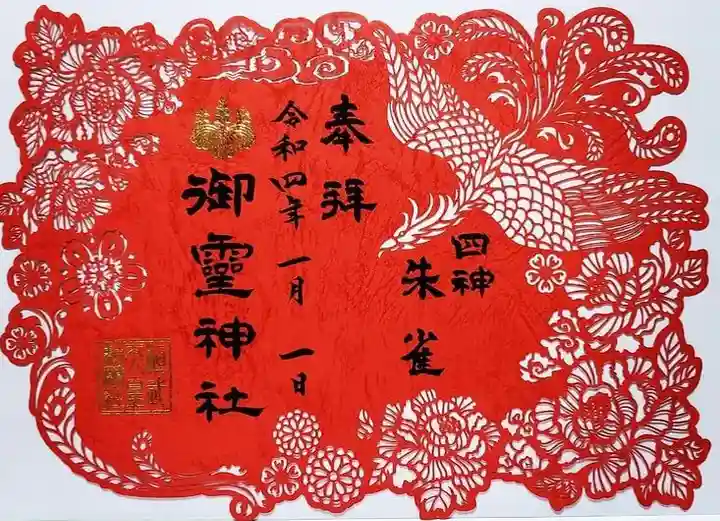 四神
朱雀
奉拝
令和四年 一月 一日
御霊神社